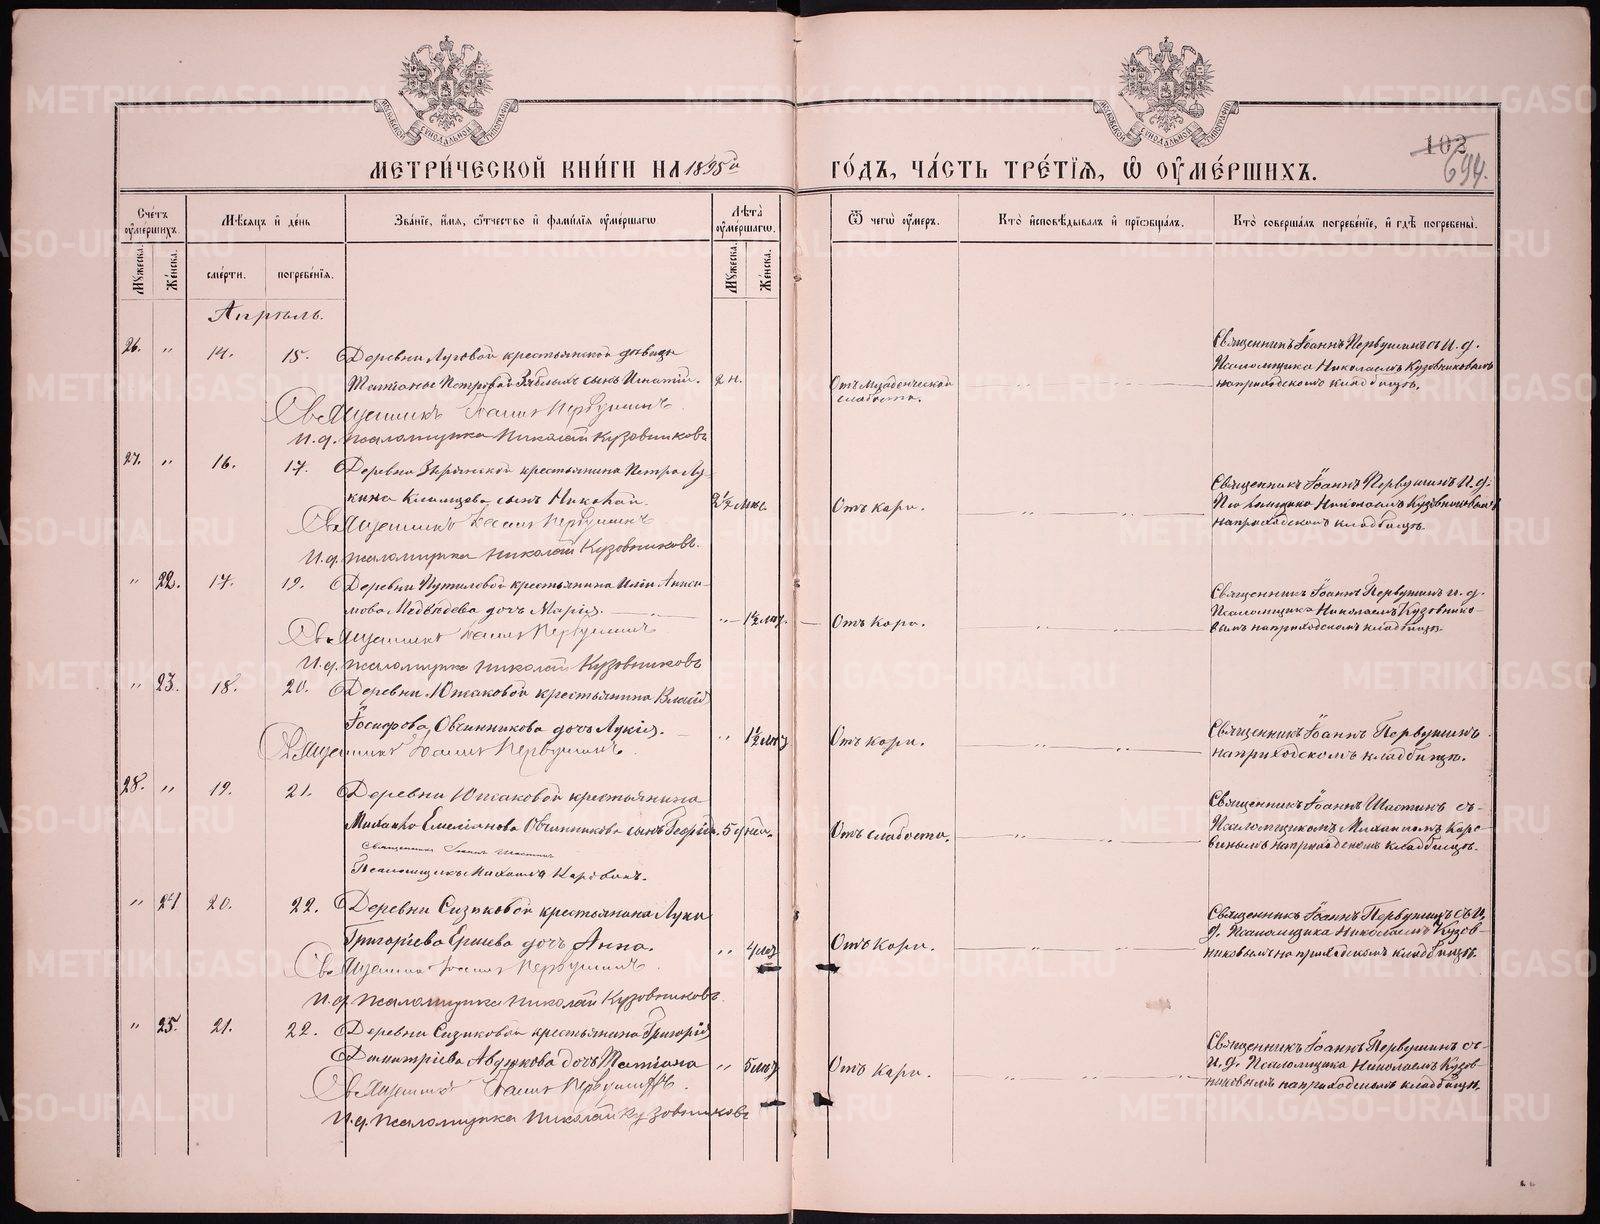 МОСКОВСКОЙ СѴНОДАЛЬНОЙ ТИПОГРАФІИ
МОСКОВСКОЙ СѴНОДАЛЬНОЙ ТИПОГРАФІИ
102
694.
МЕТРИ́ЧЕСКОЙ КНИ́ГИ НА 1895й ГО́ДЪ, ЧА́СТЬ ТРЕ́ТІѦ, Ѡ ОУМЕ́РШИХЪ.
Счетъ оумершихъ.
Мѣсяцъ и день
Званіе, имя, отчество и фамилія оумершагѡ
Лѣта оумершагѡ.
Ѿ чегѡ оумеръ.
Кто исповѣдывалъ и пріобщалъ.
Кто совершалъ погребеніе, и гдѣ погребены.
Мужеска.
Женска.
смерти.
погребенія.
Мужеска.
Женска.
Апрѣль.
26. " 14. 15. Деревни Луговой крестьянской дѣвицы
Татіаны Петровой сынъ Игнатій. 2 н. Отъ младенческой слабости.
Священникъ Іоаннъ Первушинъ съ и. д.
Псаломщика Николаемъ Кузовниковымъ
на приходскомъ кладбищѣ.
Священникъ Іоаннъ Первушинъ
И.д. псаломщика Николай Кузовниковъ
27. " 16. 17. Деревни Зырянской крестьянина Петра Лу-
кина сынъ Николай. 2½ мѣс. Отъ кори.
Священникъ Іоаннъ Первушинъ и. д.
Псаломщика Николаемъ Кузовниковымъ
на приходскомъ кладбищѣ.
Священникъ Іоаннъ Первушинъ
И.д. псаломщика Николай Кузовниковъ.
" 22. 17. 19. Деревни Путиловой крестьянина
Медвѣдева дочь Марія. " 1½ лѣт. Отъ кори.
Священникъ Іоаннъ Первушинъ и. д.
Псаломщика Николаемъ Кузовнико-
вымъ на приходскомъ кладбищѣ.
Священникъ Іоаннъ Первушинъ
И.д. псаломщика Николай Кузовниковъ
" 23. 18. 20. Деревни Южаковой крестьянина Власія
Іосифова Овчинникова дочь Лукія. " 1½ лѣт Отъ кори.
Священникъ Іоаннъ Первушинъ
на приходскомъ кладбищѣ.
Священникъ Іоаннъ Первушинъ.
28. " 19. 21. Деревни Южаковой крестьянина
Михаила Емеліанова Овчинникова сынъ Георгій. 5 дней. Отъ слабости.
Священникъ Іоаннъ Шастинъ съ
Псаломщикомъ Михаиломъ Каро-
винымъ на приходскомъ кладбищѣ.
Священникъ Іоаннъ Шастинъ
Псаломщикъ Михаилъ Каровинъ.
" 24 20. 22. Деревни Сизиковой крестьянина Луки
Григоріева Ершева дочь Анна. " 4 лѣт Отъ кори.
Священникъ Іоаннъ Первушинъ съ и.
д. Псаломщика Николаемъ Кузов-
никовымъ на приходскомъ кладбищѣ.
Священникъ Іоаннъ Первушинъ
И.д. псаломщика Николай Кузовниковъ.
" 25. 21. 22. Деревни Сизиковой крестьянина Григорія
Димитріева Авдюкова дочь Татіана " 5 лѣт Отъ кори.
Священникъ Іоаннъ Первушинъ съ
и. д. Псаломщика Николаемъ Кузов-
никовымъ на приходскомъ кладбищѣ.
Священникъ Іоаннъ Первушинъ.
И.д. псаломщика Николай Кузовниковъ
METRIKI.GASO-URAL.RU